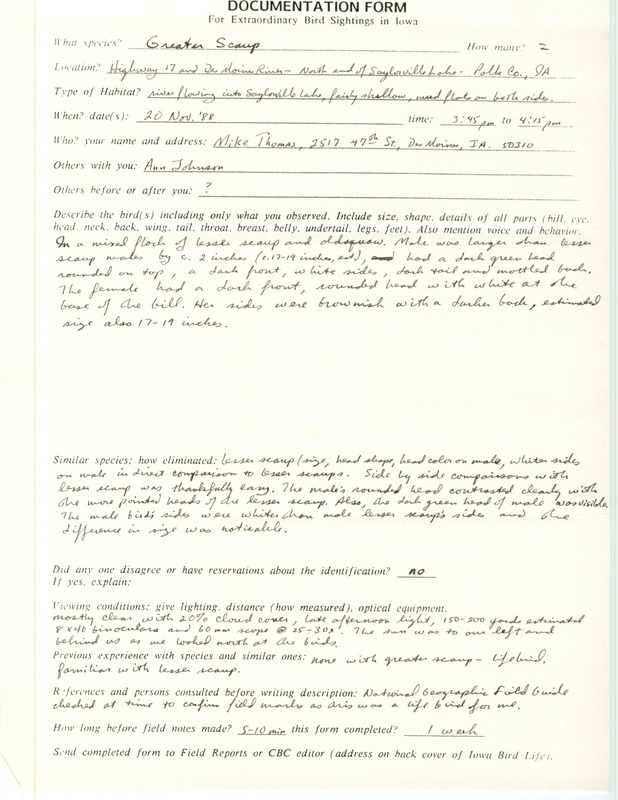 DOCUMENTATION FORM
For Extraordinary Bird Sightings in Iowa
What species? Greater Scaup How many? 2
Location? Highway 17 and Des Moines River - North end of Saylorville Lake - Polk Co., IA
Type of Habitat? river flowing into Saylorville Lake, fairly shallow, mud flats on both sides.
When? date(s): 20 Nov. '88 time: 3:45 pm to 4:15 pm
Who? your name and address: Mike Thomas, 2517 47th St., Des Moines, IA. 50310
Others with you: Ann Johnson
Others before or after you: ?
Describe the bird(s) including only what you observed. Include size, shape, details of all parts (bill, eye,
head, neck, back, wing, tail, throat, breast, belly, undertail, legs, feet). Also mention voice and behavior.
In a mixed flock of lesser scaup and oldsquaw. Male was larger than lesser
scaup males by c. 2 inches (c. 17-19 inches, est.), had a dark green head
rounded on top, a dark front, white sides, dark tail and mottled back.
The female had a dark front, rounded head with white at the
base of the bill. Her sides were brownish with a darker back, estimated
size also 17-19 inches.
Similar species; how eliminated: lesser scaup (size, head shape, head color on male, whiter sides
on male in direct comparison to lesser scaups. Side by side comparisons with
lesser scaup was thankfully easy. The male's rounded head contrasted clearly with
the more pointed heads of the lesser scaup. Also, the dark green head of male was visible.
The male bird's sides were whiter than male lesser scaup's sides and the
difference in size was noticeable.
Did any one disagree or have reservations about the identification? no
If yes, explain:
Viewing conditions: give lighting, distance (how measured), optical equipment.
mostly clear with 20% cloud cover, late afternoon light, 150-200 yards estimated
8x40 binoculars and 60 mm scope @ 25-30x. The sun was to our left and
behind us as we looked north at the birds.
Previous experience with species and similar ones: none with greater scaup - lifebird.
familiar with lesser scaup.
References and persons consulted before writing description: National Geographic Field Guide
checked at time to confirm field marks as this was a life bird for me.
How long before field notes made? 5-10 min this form completed? 1 week
Send completed form to Field Reports or CBC editor (address on back cover of Iowa Bird Life).